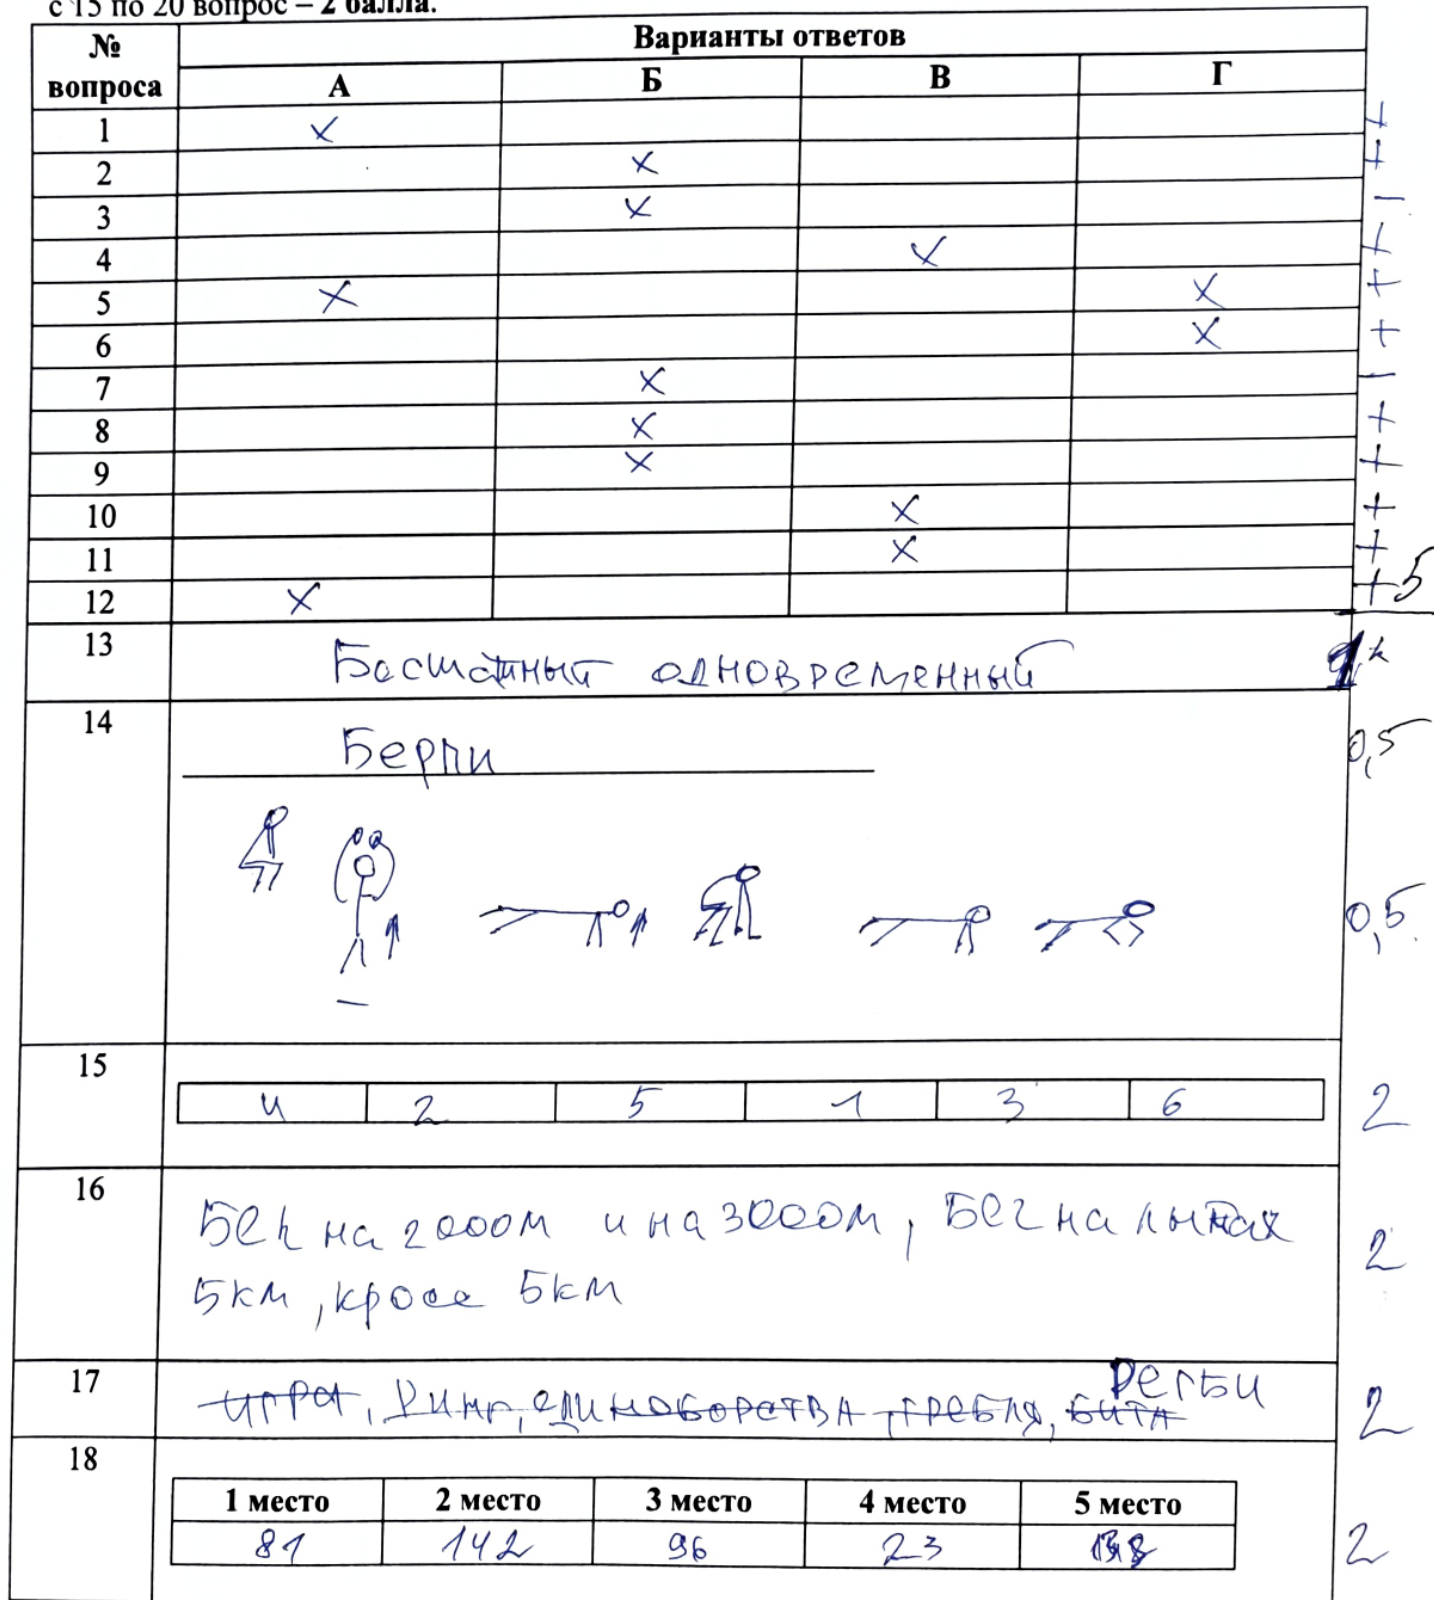 с 15 по 20 вопрос – 2 балла.
№ вопроса Варианты ответов
А Б В Г
1 X +
2 X +
3 X –
4 X +
5 X X +
6 X +
7 X –
8 X +
9 X +
10 X +
11 X +
12 X + 5
13 Бесшажный одновременный
14 Берпи 0,5
0,5
15 4 2 5 1 3 6 2
16 Бег на 2000м и на 3000м, Бег на лыжах 2
5км, кросс 5км
17 игра, Ринг, единоборства, гребля, бита Регби 2
18
1 место 2 место 3 место 4 место 5 место
81 142 96 23 2